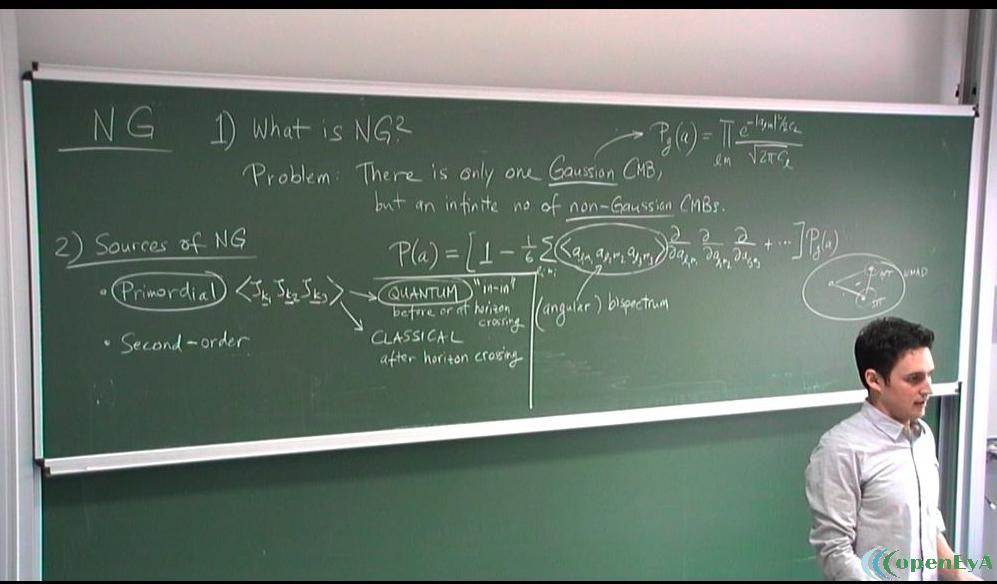 NG
1) What is NG?
P_g(a) = ∏_{lm} e^{-|a_{lm}|²/2C_l} / √(2πC_l)
Problem: There is only one Gaussian CMB,
but an infinite no of non-Gaussian CMBs.
2) Sources of NG
P(a) = [1 − 1/6 Σ_{l_i m_i} ⟨a_{l₁m₁} a_{l₂m₂} a_{l₃m₃}⟩ ∂/∂a_{l₁m₁} ∂/∂a_{l₂m₂} ∂/∂a_{l₃m₃} + ⋯] P_g(a)
(angular) bispectrum
WMAP
• Primordial ⟨ζ_{k₁} ζ_{k₂} ζ_{k₃}⟩
QUANTUM "in-in"
before or at horizon
crossing
CLASSICAL
after horizon crossing
• Second-order
openEyA